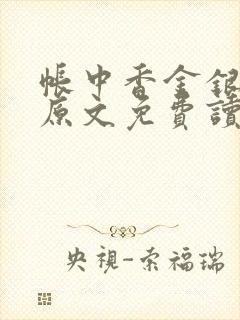 帳中香金銀
原文免費讀
央視-索福瑞